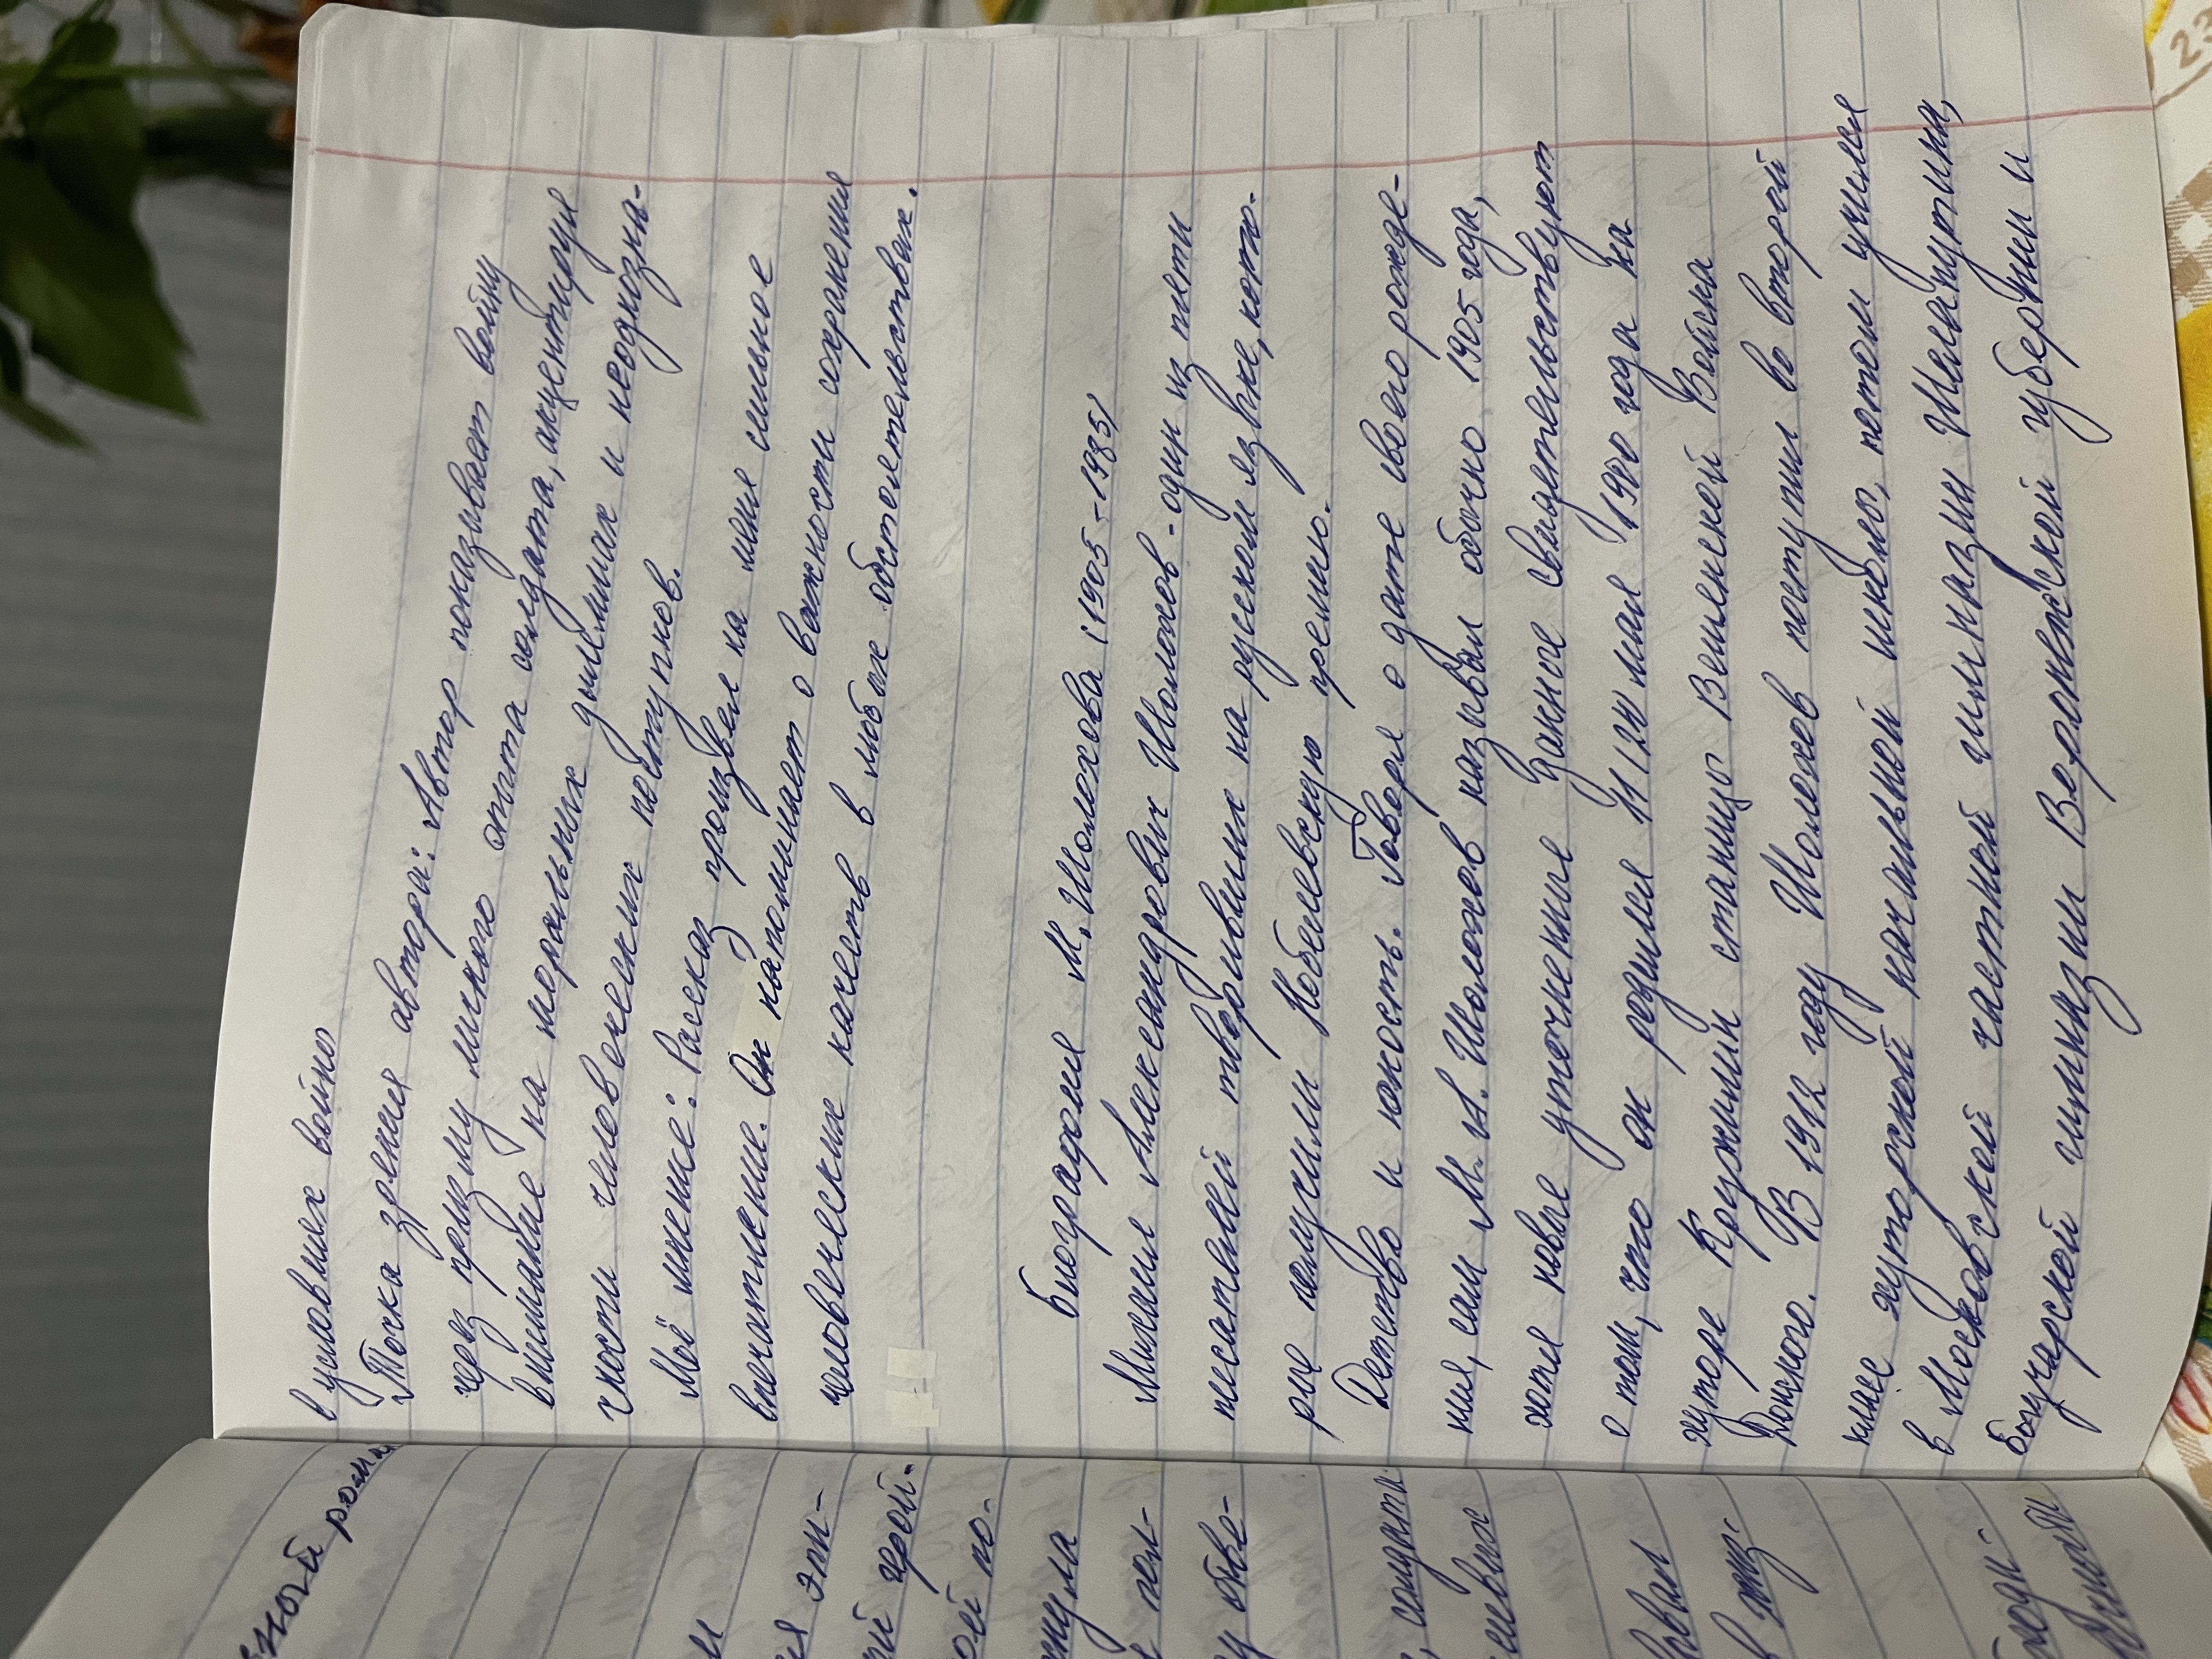 в условиях войны
Точка зрения автора: Автор показывает войну
через призму личного опыта солдата, акцентируя
внимание на моральных дилеммах и неоднозна-
чности человеческих поступков.
Моё мнение: Рассказ произвел на меня сильное
впечатление. Он напоминает о важности сохранения
человеческих качеств в любых обстоятельствах.
Биография М. Шолохова (1905-1985)
Михаил Александрович Шолохов - один из пяти
писателей творивших на русском языке, кото-
рые получили Нобелевскую премию.
Детство и юность. Говоря о дате своего рожде-
ния, сам М. А. Шолохов называл обычно 1905 год,
хотя новые уточненные данные свидетельствуют
о том, что он родился 11 (24) мая 1900 года на
хуторе Кружилин станицы Вешенской Войска
Донского. В 1912 году Шолохов поступил во второй
класс хуторской начальной школы, потом учился
в Московской частной гимназии Шелапутина,
Богучарской гимназии Воронежской губернии и
ной рома
эпи-
ерой-
ой по-
нула
пол-
у обве-
, солдата
овал
в жиз-